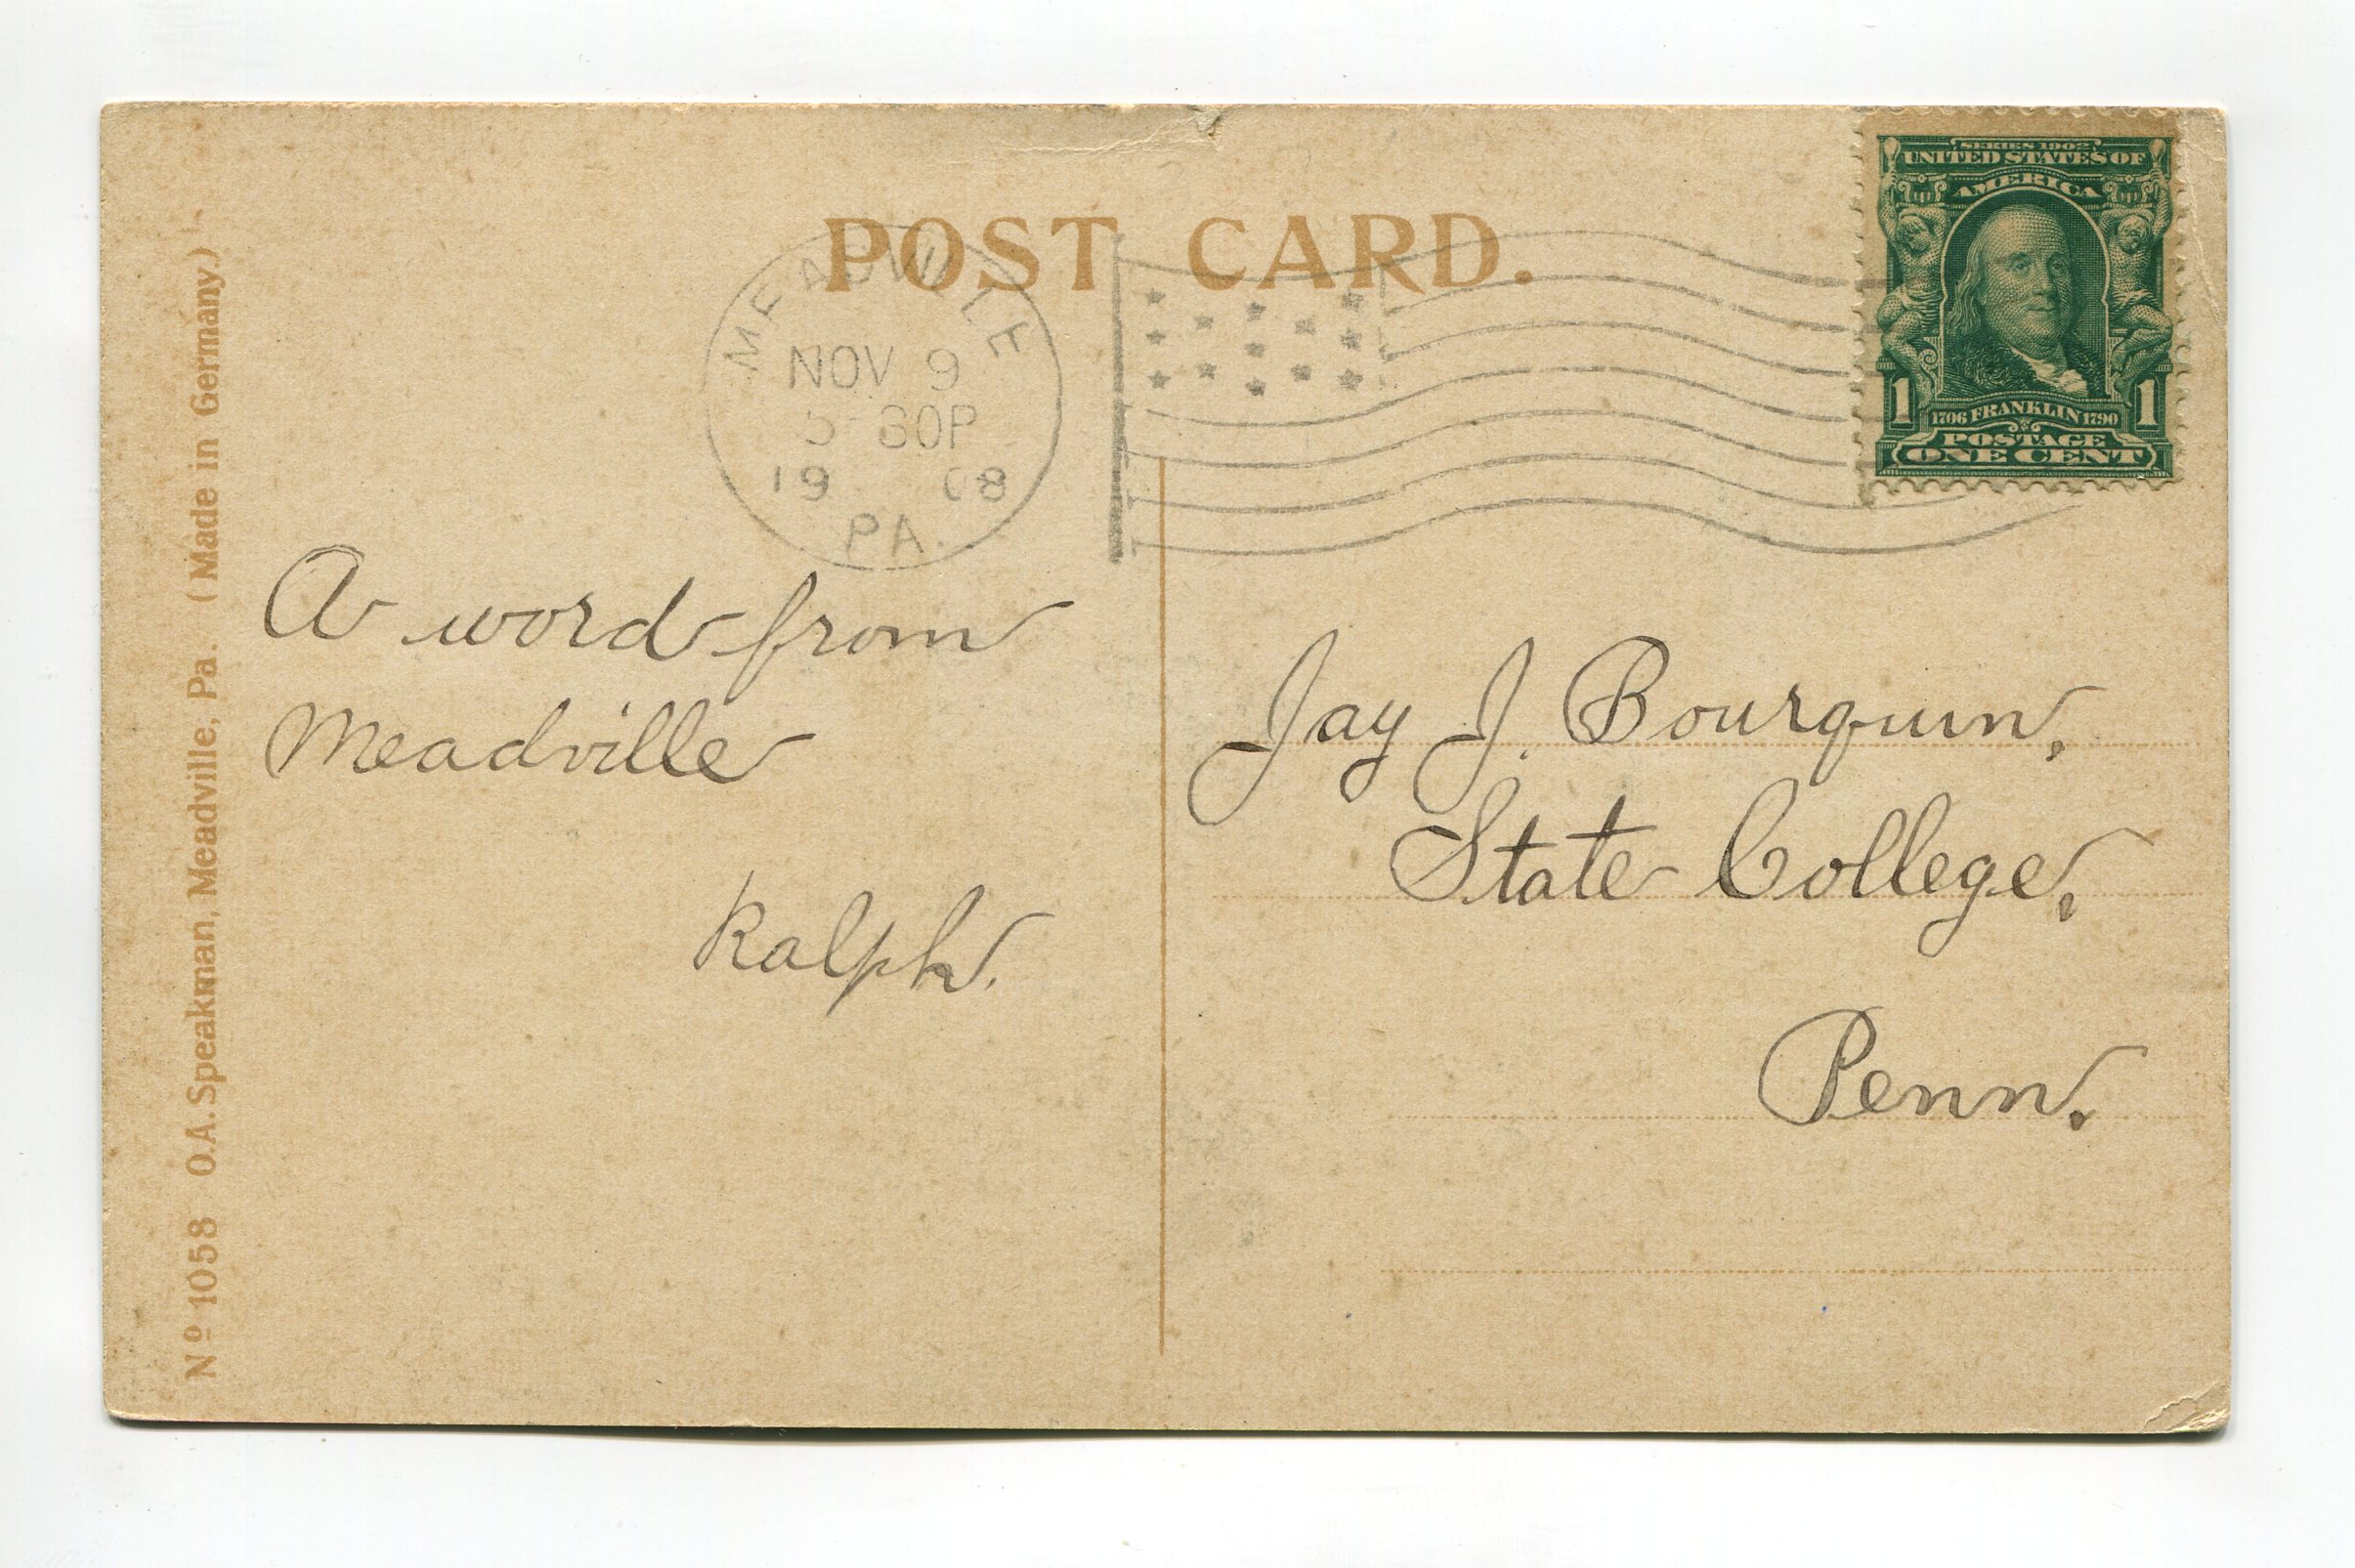 POST CARD.
MEADVILLE
NOV 9
5-30P
1908
PA.
SERIES 1902
UNITED STATES OF
AMERICA
1 1
1706 FRANKLIN 1790
POSTAGE
ONE CENT
A word from
Meadville
Ralph.
Jay J. Bourquin,
State College,
Penn.
Nº 1058 O.A. Speakman, Meadville, Pa. (Made in Germany)